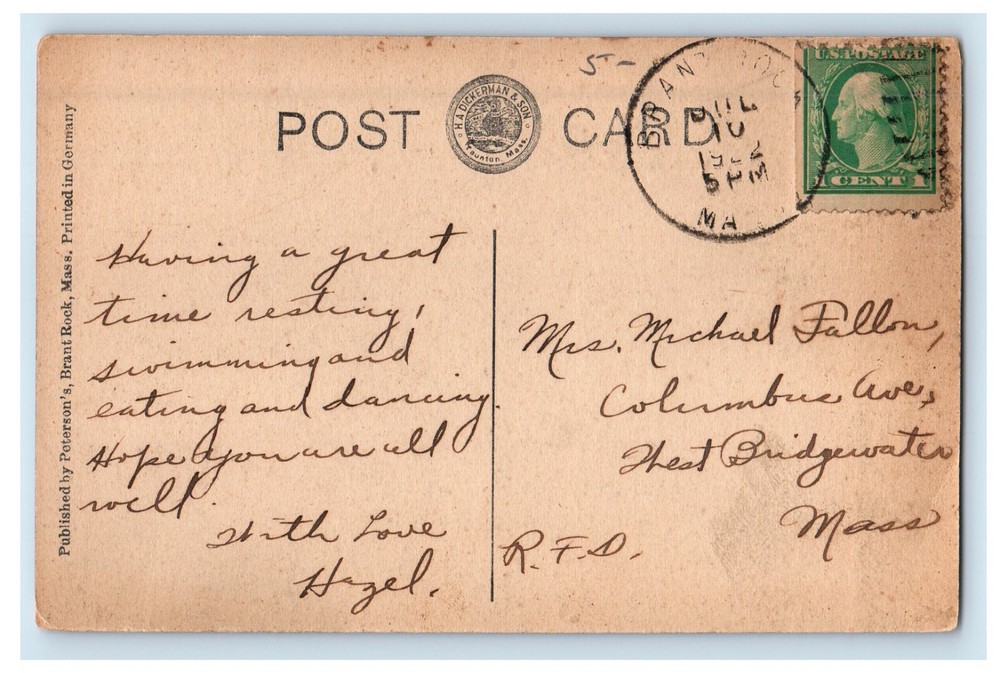 5-
POST CARD
H.A. DICKERMAN & SON
Taunton, Mass.
BRANT ROCK
JUL
10
5 PM
MA
U.S. POSTAGE
1 CENT 1
Published by Peterson's, Brant Rock, Mass. Printed in Germany
Having a great
time resting,
swimming and
eating and dancing.
Hope you are all
well.
With Love
Hazel.
Mrs. Michael Fallon,
Columbus Ave,
West Bridgewater
Mass
R.F.D.